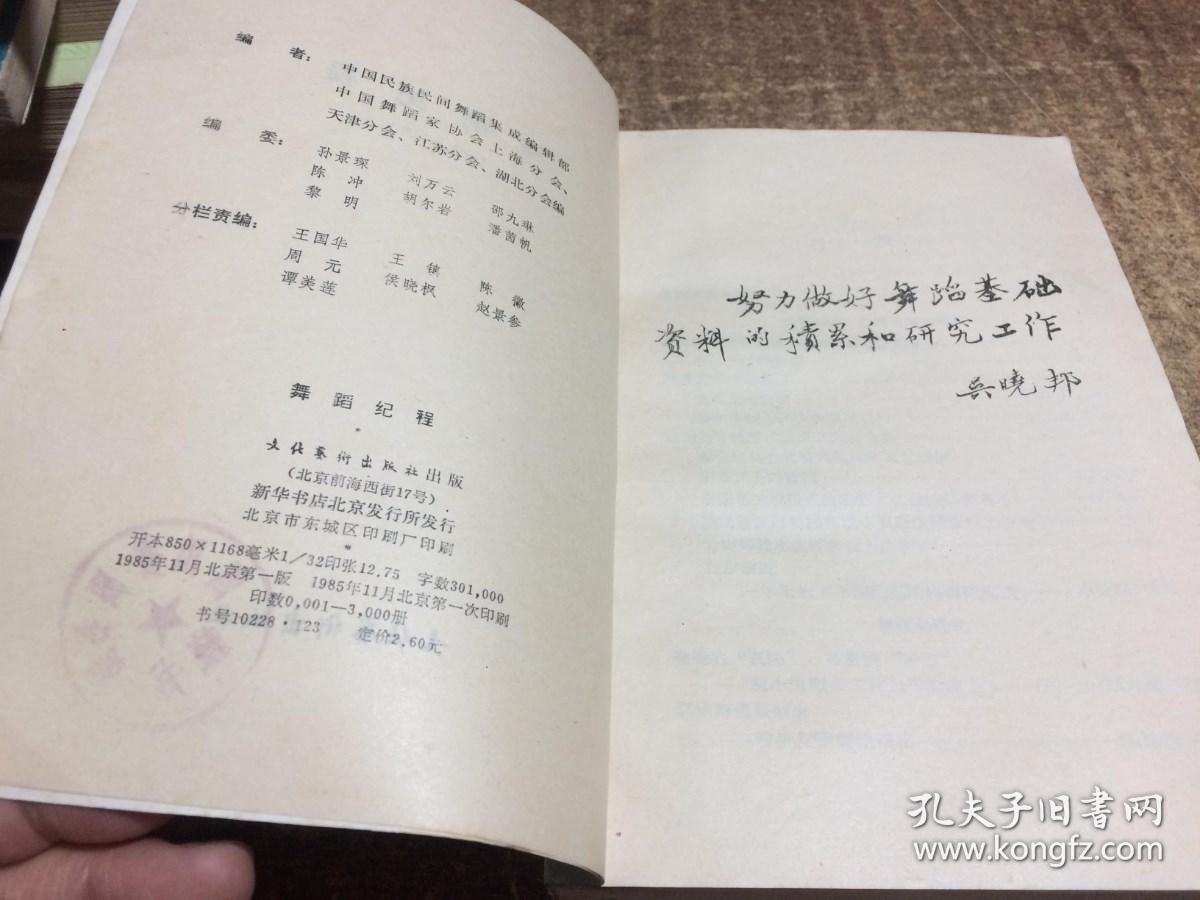 编 者：中国民族民间舞蹈集成编辑部
中国舞蹈家协会上海分会、
天津分会、江苏分会、湖北分会编
编 委：孙景琛 刘万云 邵九琳
陈 冲 胡尔岩 潘茵帆
黎 明
分栏责编：王国华 王 镇 陈 徽
周 元 侯晓枫 赵景参
谭美莲
舞 蹈 纪 程
文化藝術出版社出版
（北京前海西街17号）
新华书店北京发行所发行
北京市东城区印刷厂印刷
开本850×1168毫米1／32印张12.75 字数301,000
1985年11月北京第一版 1985年11月北京第一次印刷
印数0,001—3,000册
书号10228·123 定价2.60元
努力做好舞蹈基础
资料的積累和研究工作
吴曉邦
孔夫子旧书网
www.kongfz.com